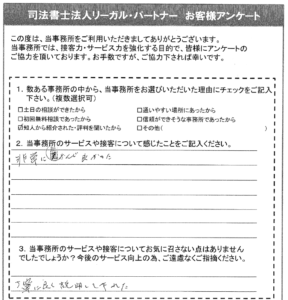 司法書士法人リーガル・パートナー　お客様アンケート
この度は、当事務所をご利用いただきましてありがとうございます。
当事務所では、接客力・サービス力を強化する目的で、皆様にアンケートの
ご協力を頂いております。お手数ですが、ご協力下されば幸いです。
1. 数ある事務所の中から、当事務所をお選びいただいた理由にチェックをご記入
下さい。（複数選択可）
□土日の相談ができたから　□通いやすい場所にあったから
□初回無料相談であったから　□信頼ができそうな事務所であったから
☑知人から紹介された・評判を聞いたから　□その他（　）
2. 当事務所のサービスや接客について感じたことをご記入ください。
非常に
良かった
3. 当事務所のサービスや接客についてお気に召さない点はありません
でしたでしょうか？今後のサービス向上の為、ご遠慮なくご指摘ください。
丁寧に
説明して